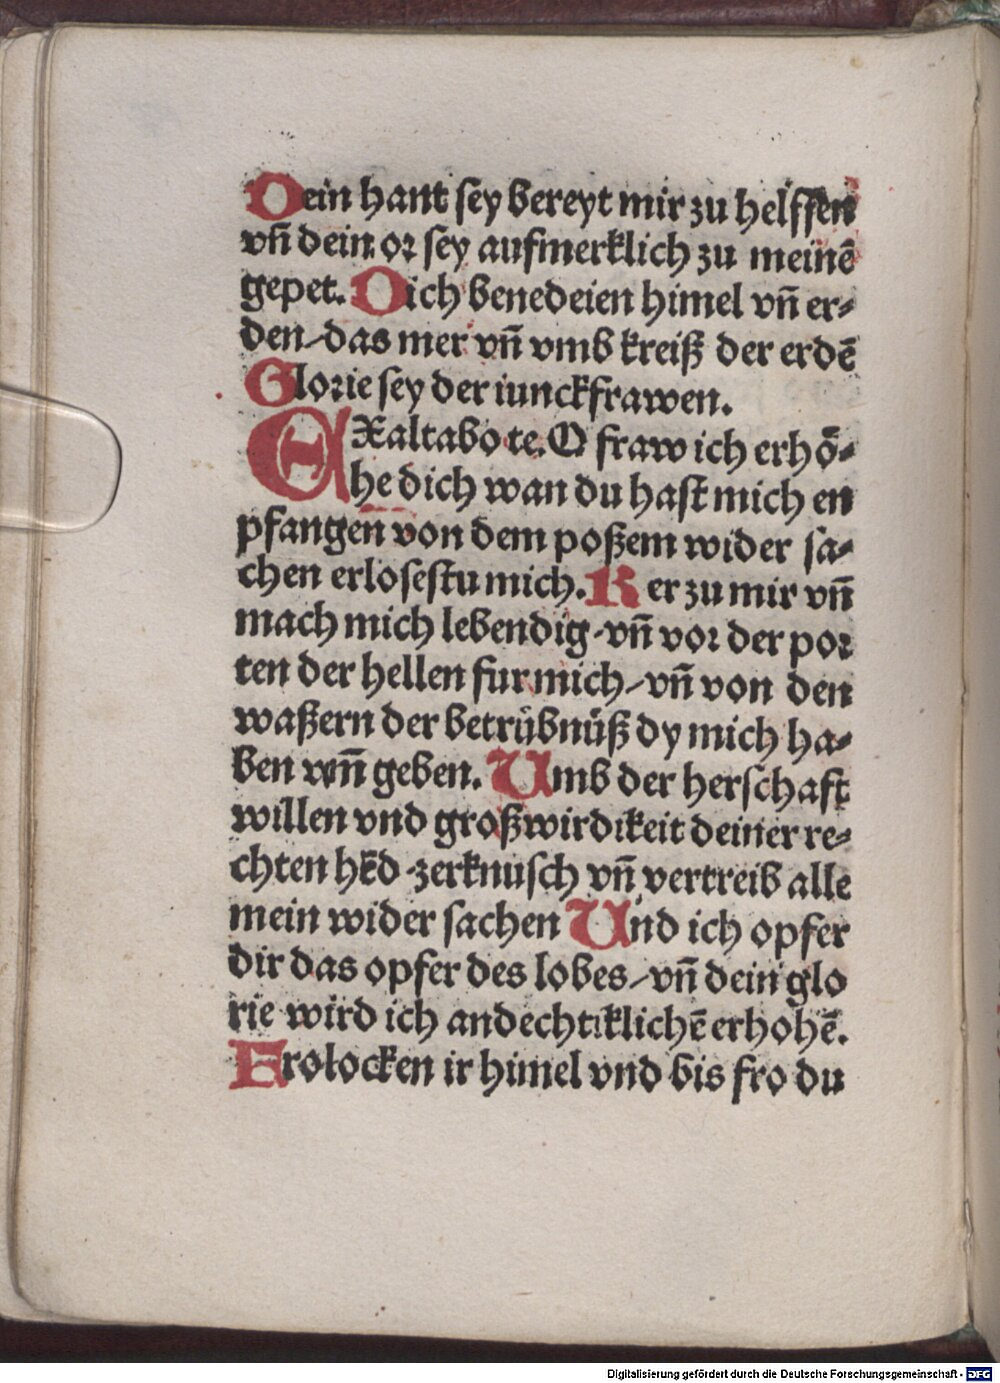 Dein hant sey bereyt mir zu helffen
vn̄ dein oꝛ ſey aufmerklich zu meinē
gepet. Dich benedeien himel vn̄ er⸗
den/das mer vn̄ vmb kreiß der erdē
Gloꝛie ſey der iunckfrawen.
EXaltabo te. O fraw ich erhō⸗
he dich wan du haſt mich en
pfangen von dem poßem wider ſa⸗
chen erloſeſtu mich. Ker zu mir vn̄
mach mich lebendig/vn̄ voꝛ der poꝛ
ten der hellen fur mich/vn̄ von den
waßern der betrübnüß dy mich ha⸗
ben vm̄ geben. Umb der herſchaft
willen vnd großwirdikeit deiner re⸗
chten hēd/zerknuſch vn̄ vertreib alle
mein wider ſachen Und ich opfer
dir das opfer des lobes/vn̄ dein glo
rie wird ich andechtiklichē erhohē.
Frolocken ir himel vnd bis fro du
Digitalisierung gefördert durch die Deutsche Forschungsgemeinschaft - DFG